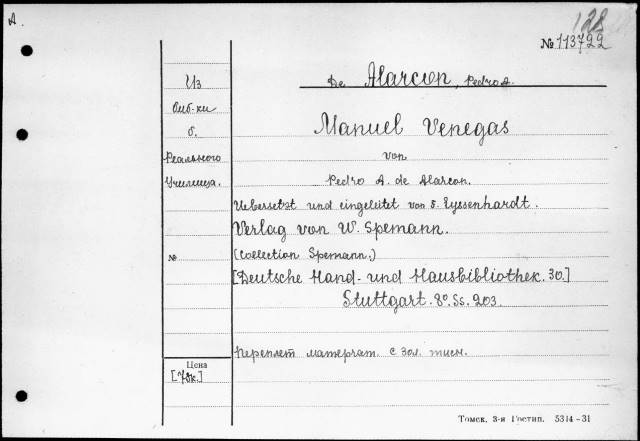 A.
128
№ 113722
Из
биб-ки
б.
Реального
Училища.
De Alarcon, Pedro A.
Manuel Venegas
von
Pedro A. de Alarcon.
Uebersetzt und eingeleitet von F. Eyssenhardt.
Verlag von W. Spemann.
№
(Collection Spemann.)
[Deutsche Hand- und Hausbibliothek. 30.]
Stuttgart. 8º. Ss. 203.
Переплет матерчат. с зол. тисн.
Цена
Томск. 3-я Гостип. 5314-31